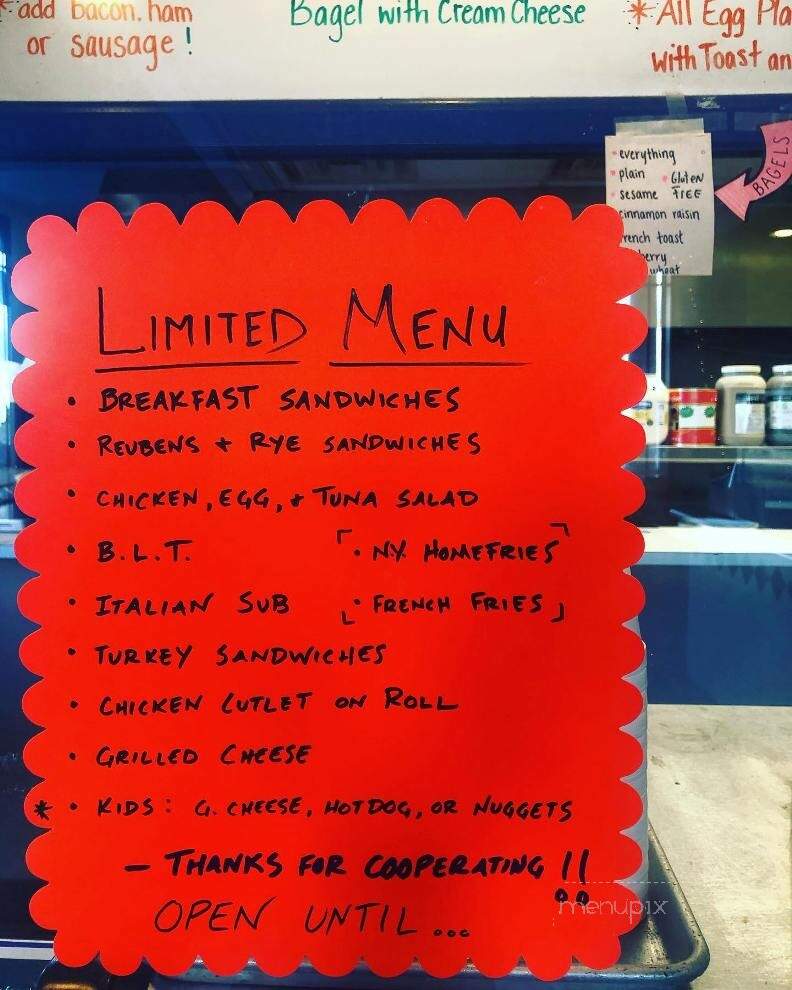 * add bacon, ham
or sausage!
Bagel with Cream Cheese
* All Egg
with Toast
• everything
• plain
• sesame
• Gluten
FREE
cinnamon raisin
french toast
BAGELS
LIMITED MENU
• BREAKFAST SANDWICHES
• REUBENS + RYE SANDWICHES
• CHICKEN, EGG, + TUNA SALAD
• B.L.T.
• NY HOMEFRIES
• ITALIAN SUB
• FRENCH FRIES
• TURKEY SANDWICHES
• CHICKEN CUTLET ON ROLL
• GRILLED CHEESE
* • KIDS: G. CHEESE, HOTDOG, OR NUGGETS
– THANKS FOR COOPERATING!!
OPEN UNTIL...
menupix